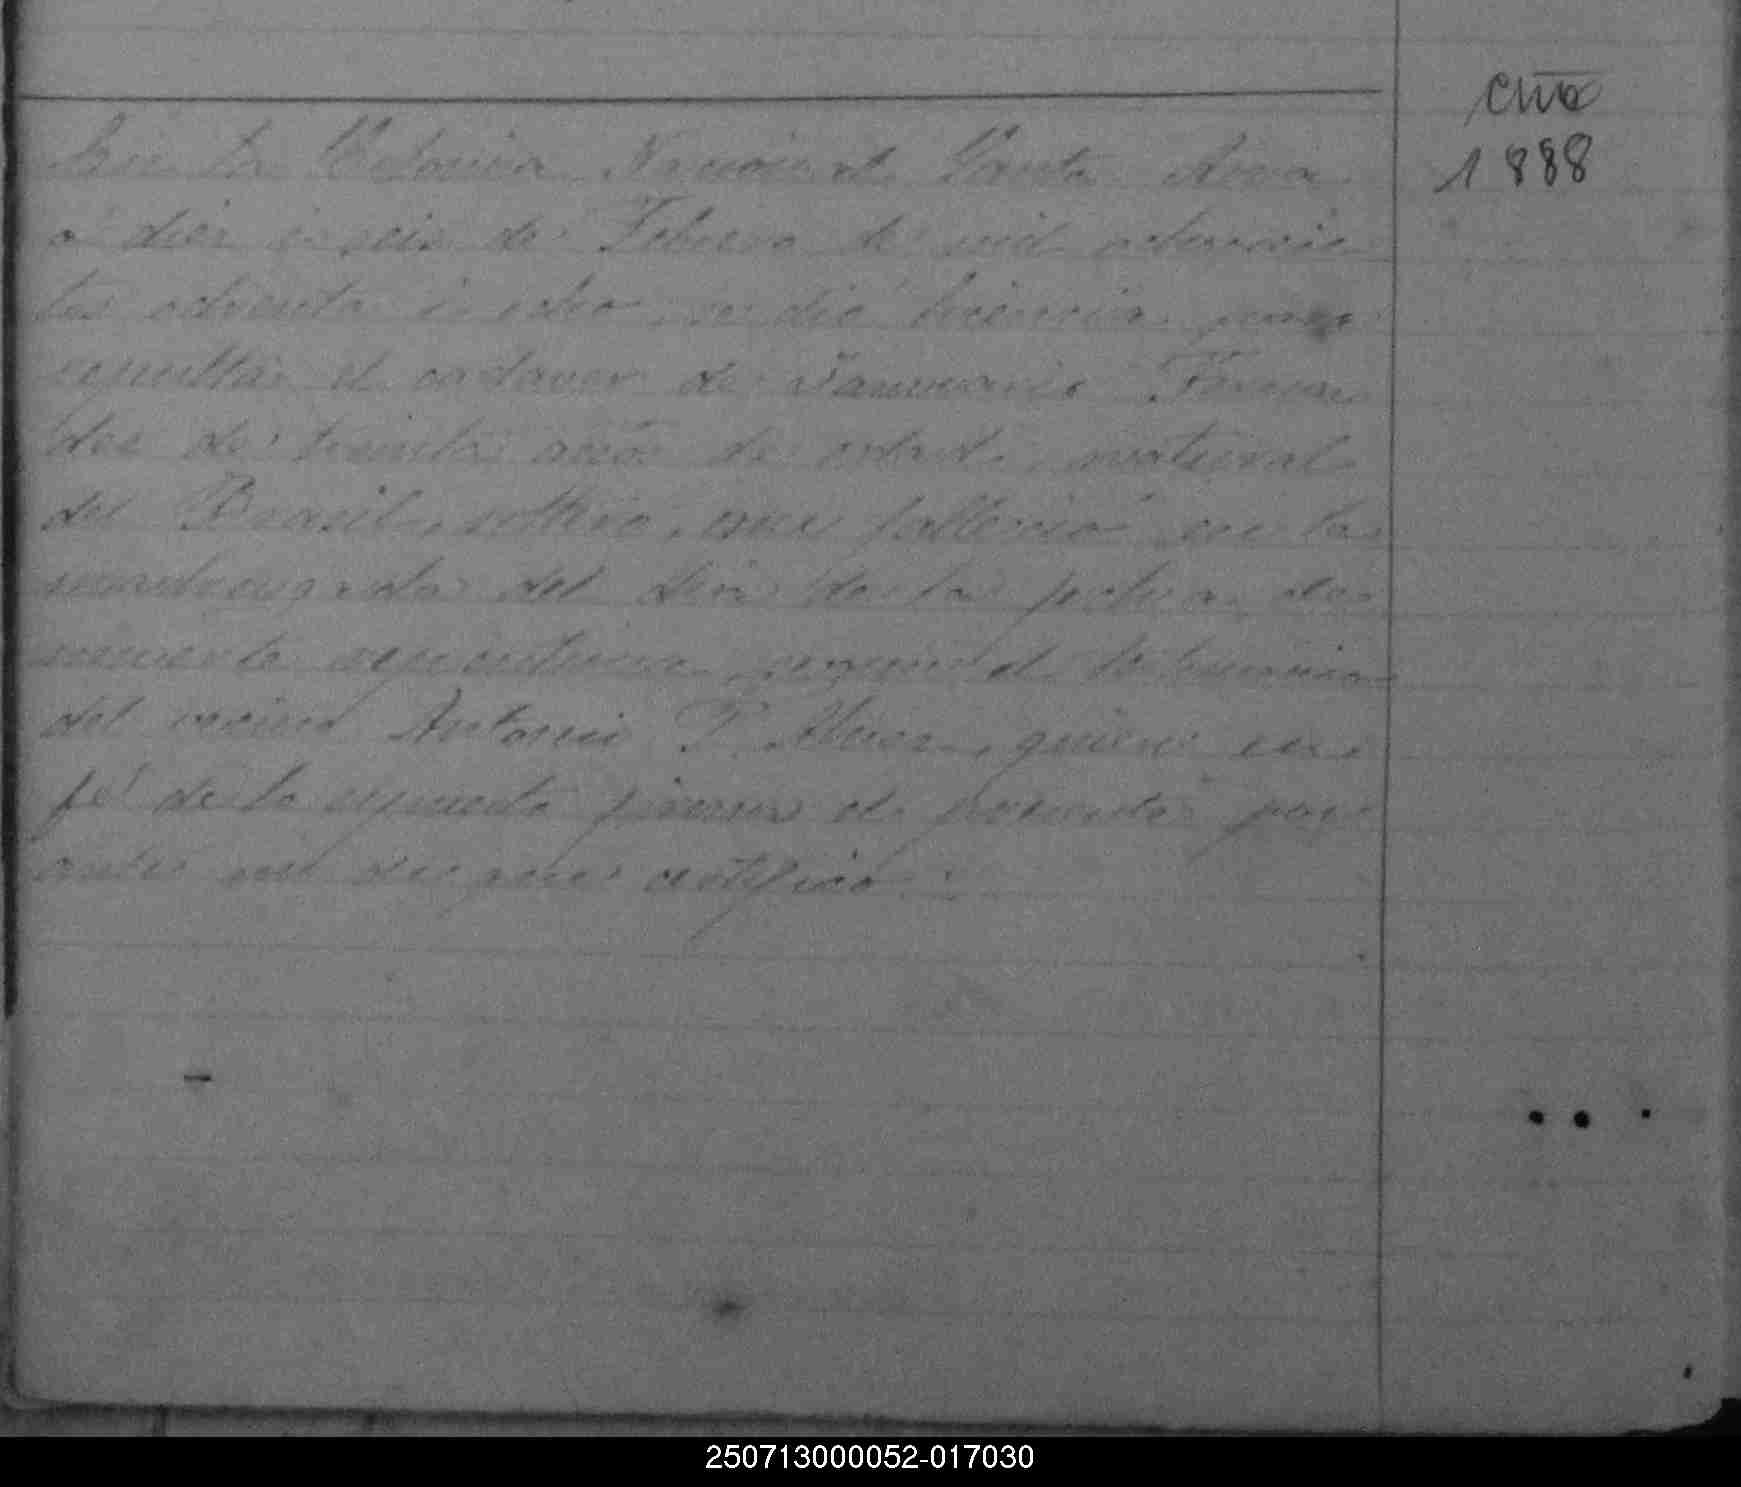 En la Colonia Nacional Santa Ana
a diez i seis de Febrero de mil ochocien
tos ochenta i ocho, se dió licencia para
sepultar el cadaver de Januario Fernan
des de treinta años de edad, natural
del Brasil, soltero, que falleció en la
madrugada del dia de la fecha, de
muerte repentina, segun el
del vecino Antonio P. quien en
fé de lo espuesto firma el presente por
ante mi de que certifico.
1888
250713000052-017030